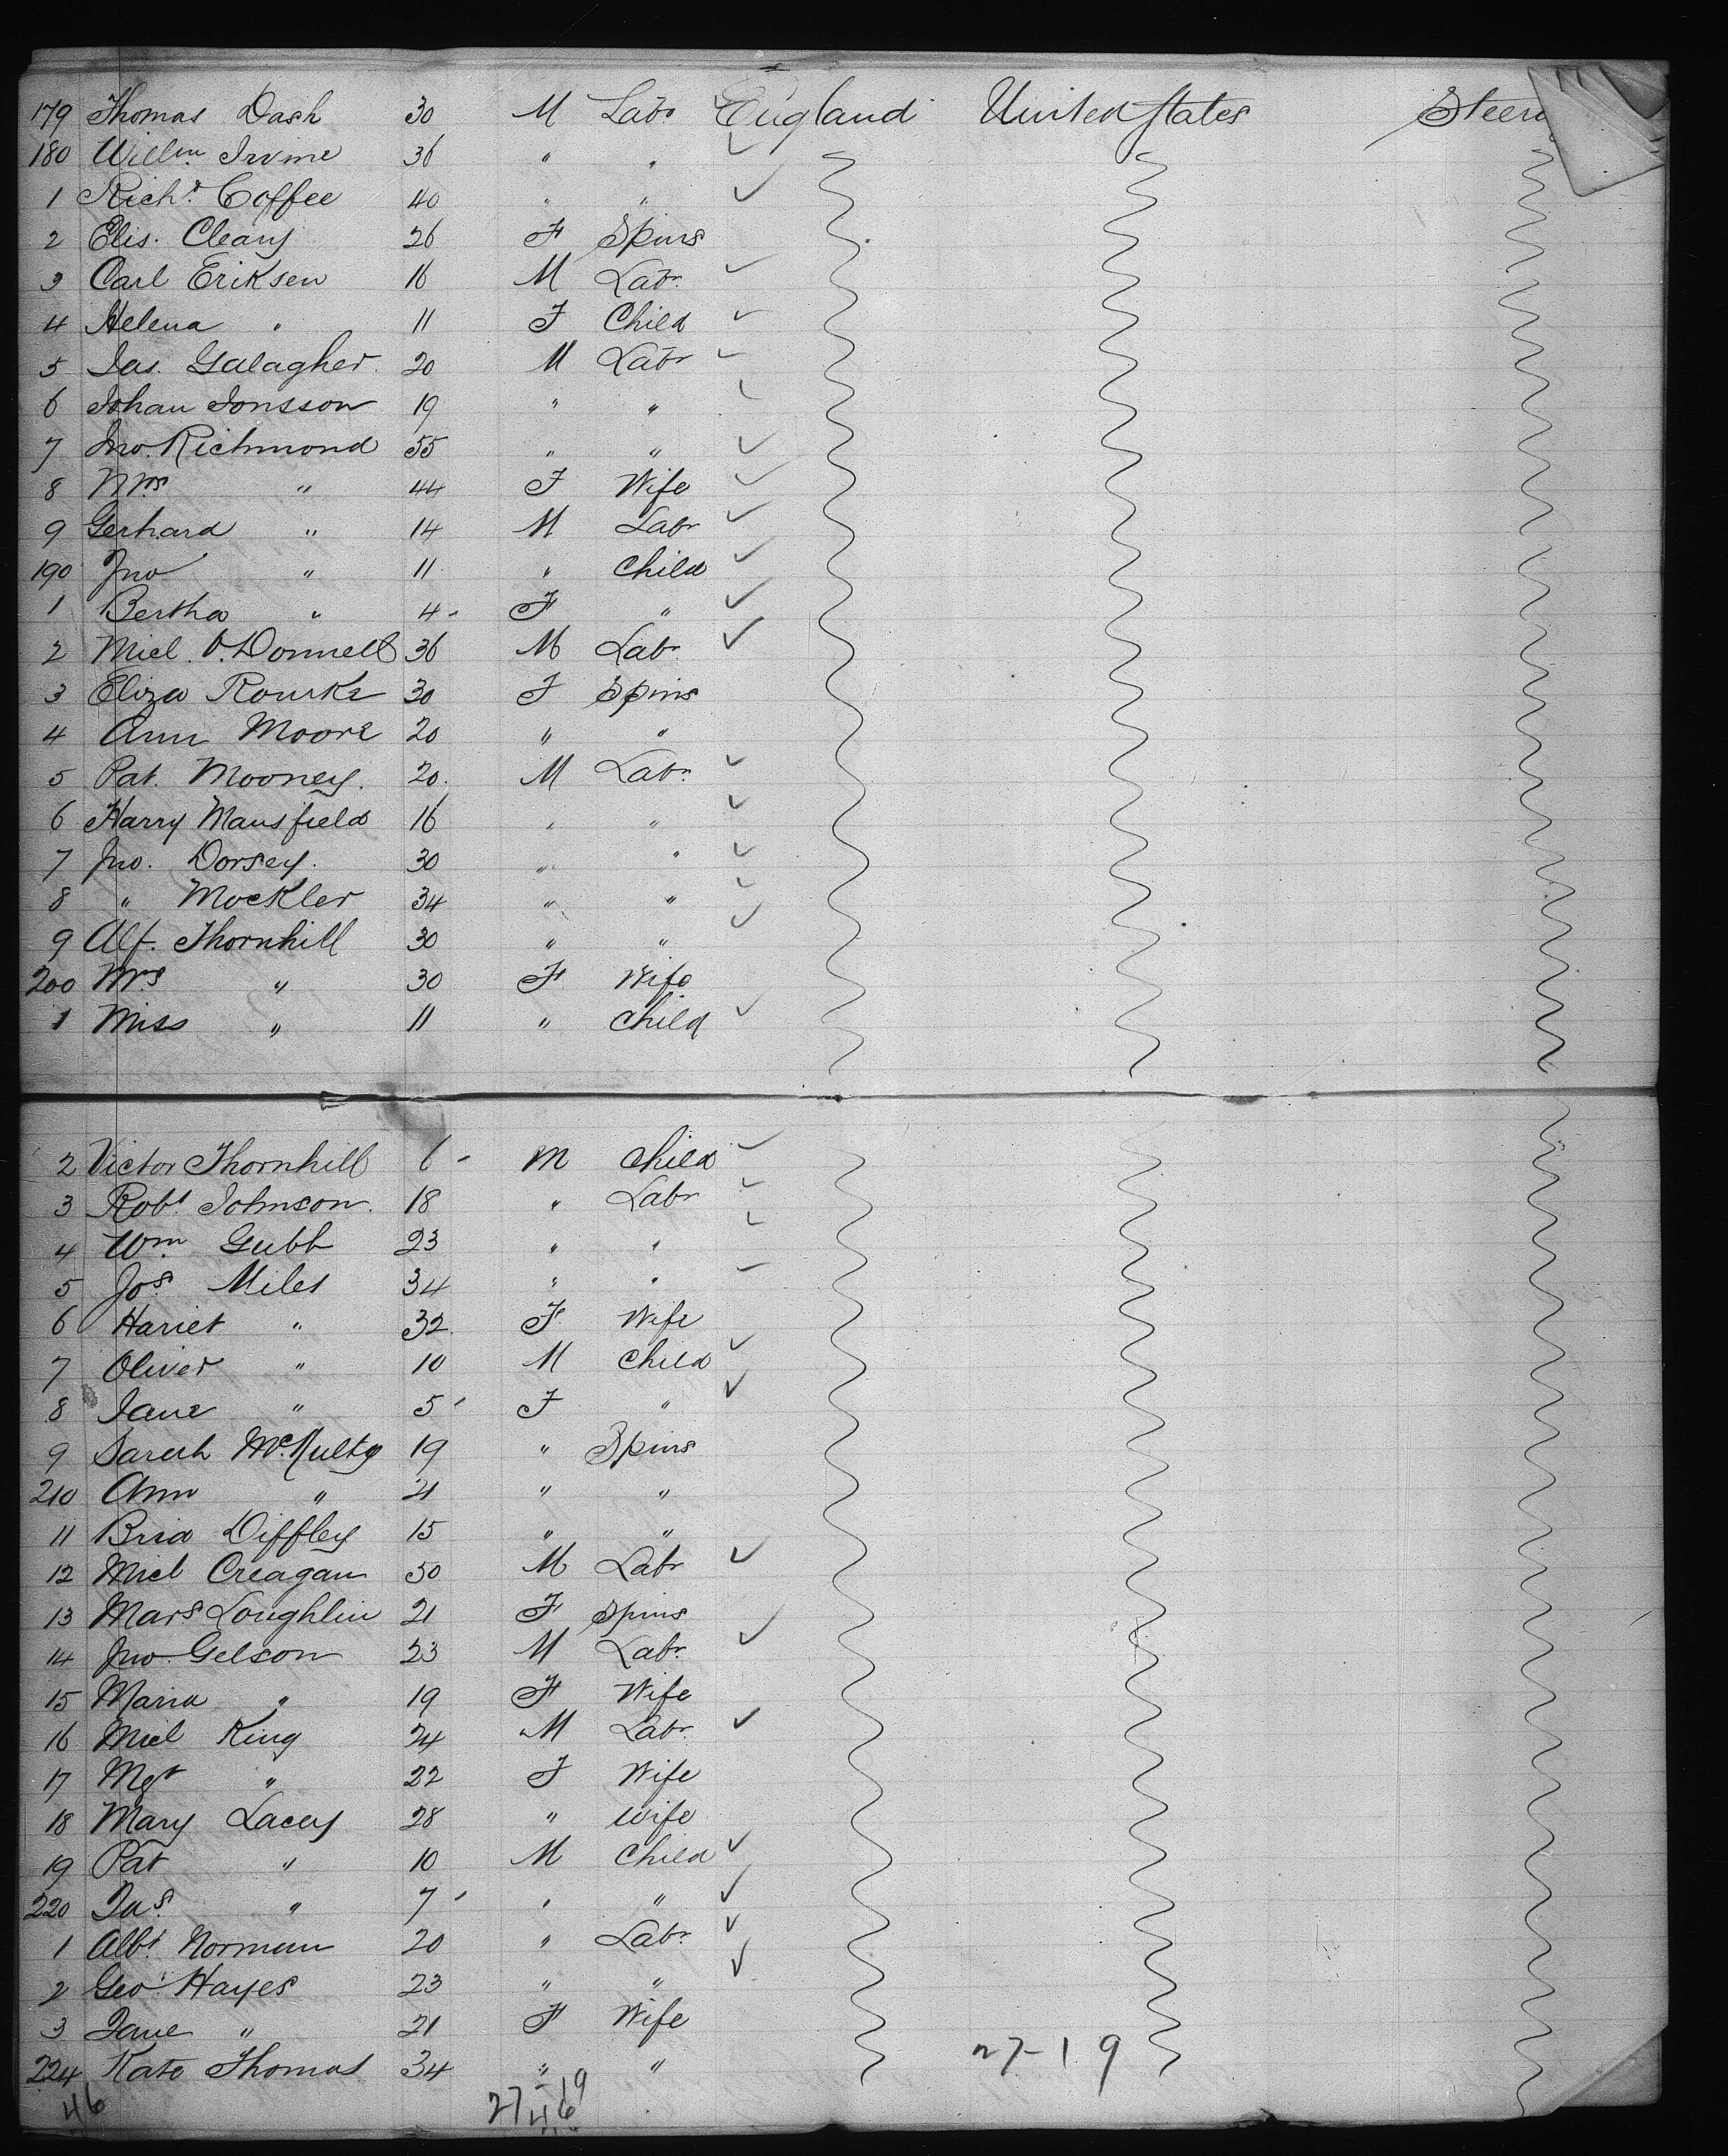 179 Thomas Dash 30 M Labr England United States Steera
180 Willm Irvine 36 " "
1 Richd Coffee 40 " "
2 Elis. Cleary 26 F Spins
3 Carl Eriksen 16 M Labr
4 Helena " 11 F Child
5 Jas. Galagher 20 M Labr
6 Johan Jonsson 19 " "
7 Jno. Richmond 55 " "
8 Mrs " 44 F Wife
9 Gerhard " 14 M Labr
190 Jno " 11 " Child
1 Bertha " 4 - F "
2 Micl. O'Donnell 36 M Labr
3 Eliza Rourke 30 F Spins
4 Ann Moore 20 " "
5 Pat. Mooney. 20. M Labr
6 Harry Mansfield 16 " "
7 Jno. Dorsey. 30 " "
8 " Mockler 34 " "
9 Alf. Thornhill 30 " "
200 Mrs " 30 F Wife
1 Miss " 11 " Child
2 Victor Thornhill 6 - M Child
3 Robt Johnson. 18 " Labr
4 Wm Gubb 23 " "
5 Jos Miles 34 " "
6 Hariet " 32 F Wife
7 Oliver " 10 M Child
8 Jane " 5 - F "
9 Sarah McNulty 19 " Spins
210 Ann " 21 " "
11 Brid Diffley 15 " "
12 Micl Creagan 50 M Labr
13 Mars Loughlin 21 F Spins
14 Jno Gelson 23 M Labr
15 Maria " 19 F Wife
16 Micl King 24 M Labr
17 Mgt " 22 F Wife
18 Mary Lacey 28 " Wife
19 Pat " 10 M Child
220 Jas " 7 - " "
1 Albt Norman 20 " Labr
2 Geo Hayes 23 " "
3 Jane " 21 F Wife
224 Kate Thomas 34 " " 27-19
46 27-19
46